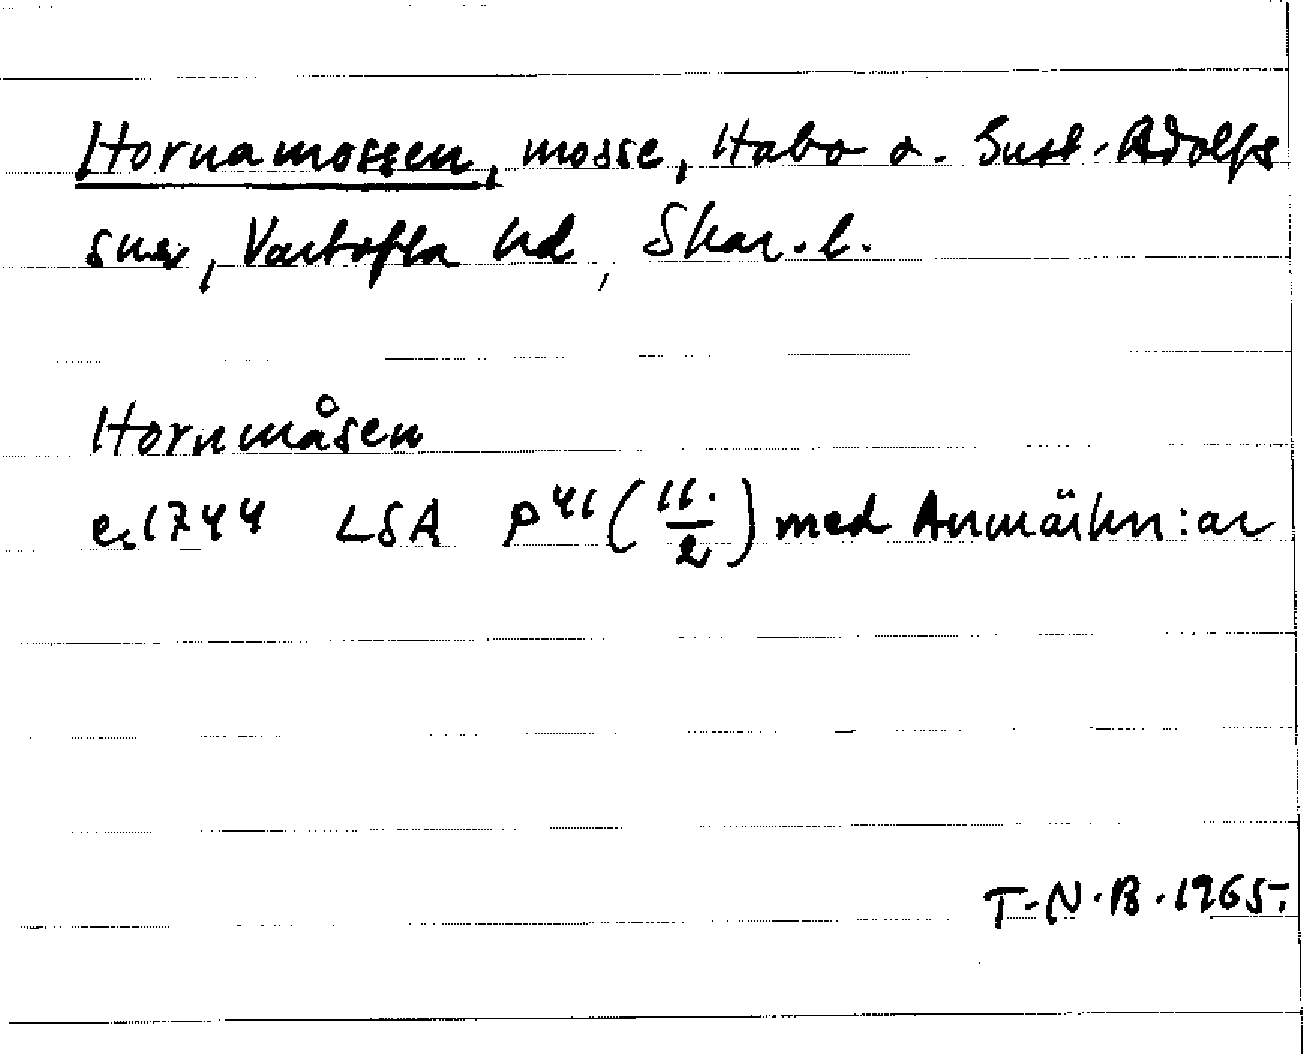 Hornamossen, mosse, Habo o. Gust. Adolfs
snr, Vartofta hd, Skar. l.
Hornmåsen
e. 1744 LSA P 41 (11./2) med Anmärkn:ar
T.N.B. 1965.